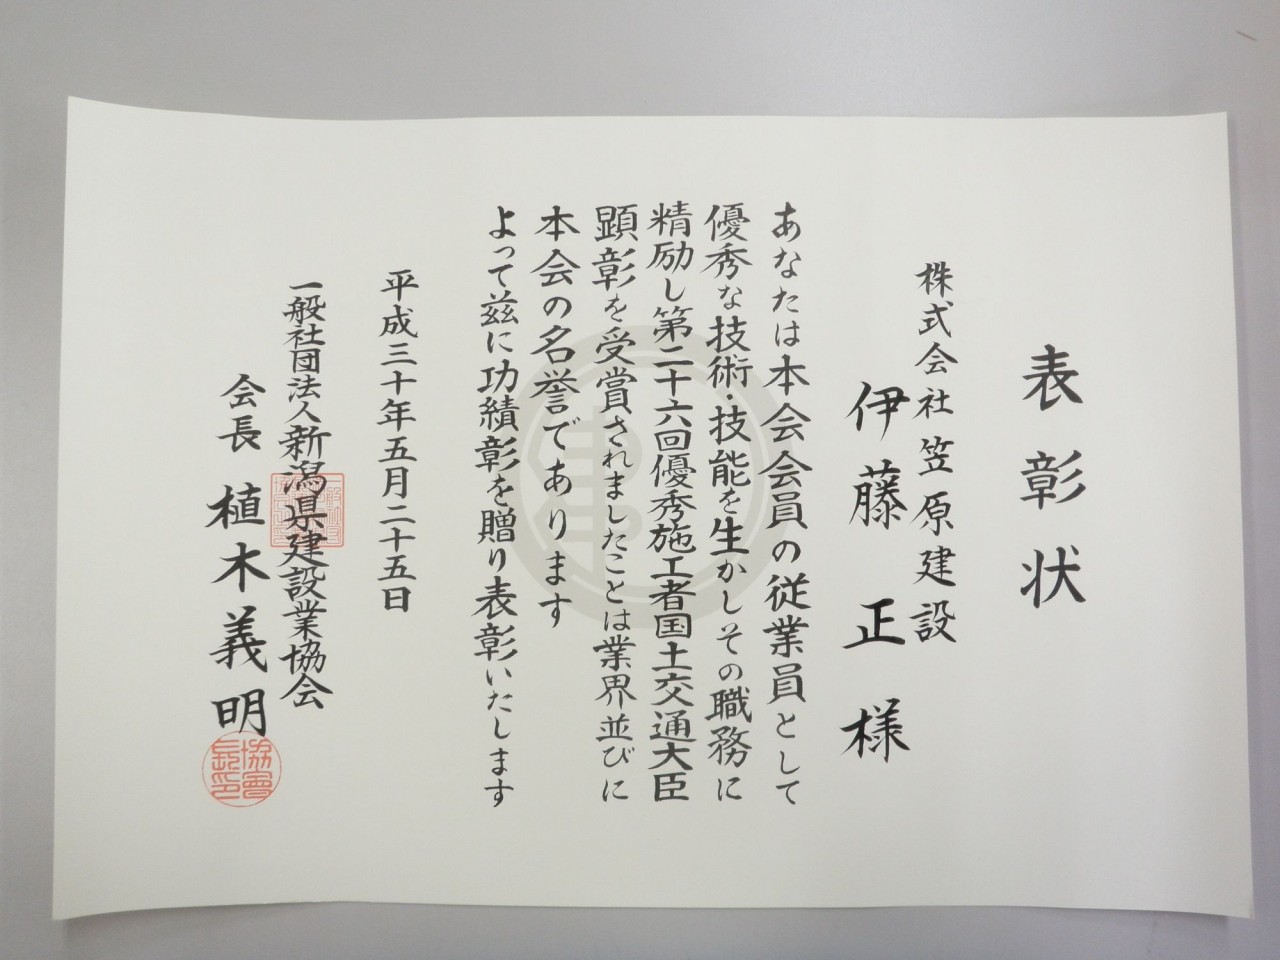 表彰状
株式会社笠原建設
伊藤正様
あなたは本会会員の従業員として
優秀な技術・技能を生かしその職務に
精励し第二十六回優秀施工者国土交通大臣
顕彰を受賞されましたことは業界並びに
本会の名誉であります
よって茲に功績彰を贈り表彰いたします
平成三十年五月二十五日
一般社団法人新潟県建設業協会
会長 植木義明
協會長印